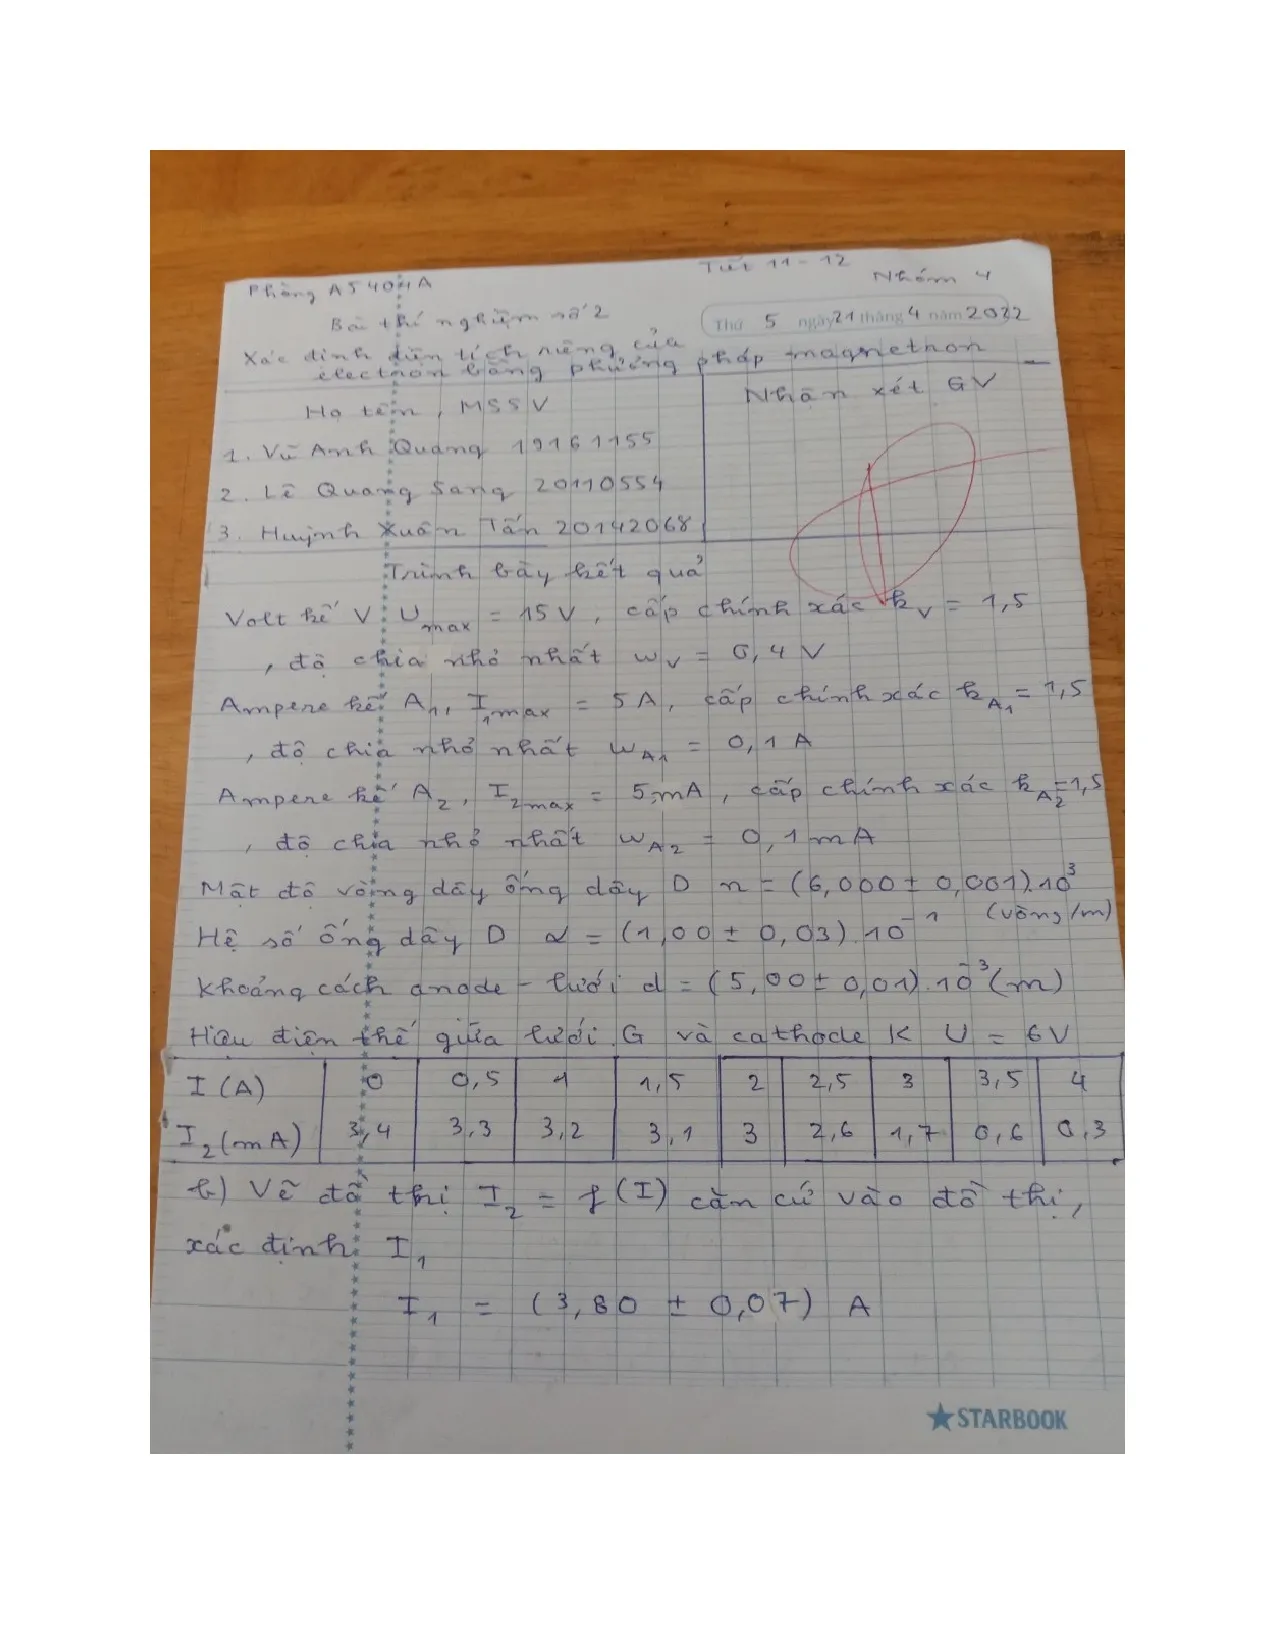 Tiết 11 - 12
Phòng A5 404A
Nhóm 4
Bài thí nghiệm số 2
Thứ 5 ngày 21 tháng 4 năm 2022
Xác định điện tích riêng của
electron bằng phương pháp magnethon
Họ tên, MSSV
Nhận xét GV
1. Vũ Anh Quang 19161155
2. Lê Quang Sang 20110554
3. Huỳnh Xuân Tấn 20142068
Trình bày kết quả
Volt kế V Umax = 15 V, cấp chính xác kV = 1,5
, độ chia nhỏ nhất wV = 0,4 V
Ampere kế A1, I1max = 5 A, cấp chính xác kA1 = 1,5
, độ chia nhỏ nhất wA1 = 0,1 A
Ampere kế A2, I2max = 5 mA, cấp chính xác kA2 = 1,5
, độ chia nhỏ nhất wA2 = 0,1 mA
Mật độ vòng dây ống dây D n = (6,000 ± 0,001).10³
(vòng/m)
Hệ số ống dây D α = (1,00 ± 0,03).10⁻¹
Khoảng cách anode - lưới d = (5,00 ± 0,01).10⁻³(m)
Hiệu điện thế giữa lưới G và cathode K U = 6V
I (A) 0 0,5 1 1,5 2 2,5 3 3,5 4
I2 (mA) 3,4 3,3 3,2 3,1 3 2,6 1,7 0,6 0,3
b) Vẽ đồ thị I2 = f(I) căn cứ vào đồ thị,
xác định I1
I1 = (3,80 ± 0,07) A
STARBOOK